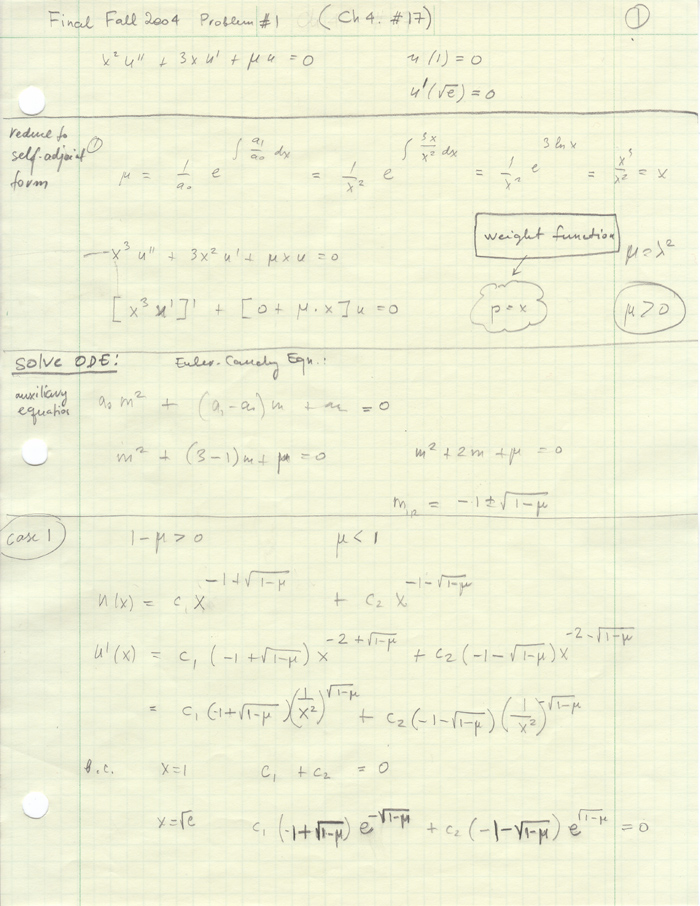 Final Fall 2004 Problem #1 (Ch 4. #17) ①
x² u'' + 3x u' + μ u = 0 u(1) = 0
u'(√e) = 0
reduce to self-adjoint form ①
μ = 1/a₀ e^{∫ a₁/a₀ dx} = 1/x² e^{∫ 3x/x² dx} = 1/x² e^{3 ln x} = x³/x² = x
weight function
x³ u'' + 3x² u' + μ x u = 0 μ = λ²
[x³ u']' + [0 + μ · x] u = 0 p = x μ > 0
solve ODE: Euler-Cauchy Eqn.:
auxiliary equation a₀ m² + (a₁ - a₀) m + a₂ = 0
m² + (3 - 1) m + μ = 0 m² + 2m + μ = 0
m₁,₂ = -1 ± √(1-μ)
case 1 1 - μ > 0 μ < 1
u(x) = c₁ x^{-1+√(1-μ)} + c₂ x^{-1-√(1-μ)}
u'(x) = c₁ (-1 + √(1-μ)) x^{-2+√(1-μ)} + c₂ (-1 - √(1-μ)) x^{-2-√(1-μ)}
= c₁ (-1 + √(1-μ)) (1/x²)^{√(1-μ)} + c₂ (-1 - √(1-μ)) (1/x²)^{-√(1-μ)}
b.c. x = 1 c₁ + c₂ = 0
x = √e c₁ (-1 + √(1-μ)) e^{-√(1-μ)} + c₂ (-1 - √(1-μ)) e^{√(1-μ)} = 0